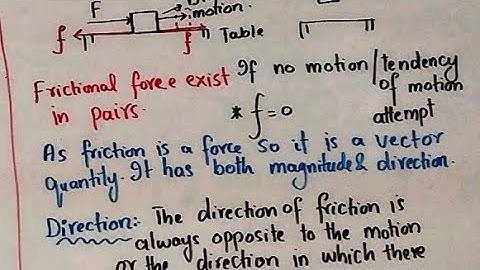 F
motion.
f
f
Table
Frictional force exist
in pairs.
If no motion/tendency
of motion
attempt
* f = 0
As friction is a force so it is a vector
quantity. It has both magnitude & direction.
Direction: The direction of friction is
always opposite to the motion
or the direction in which there